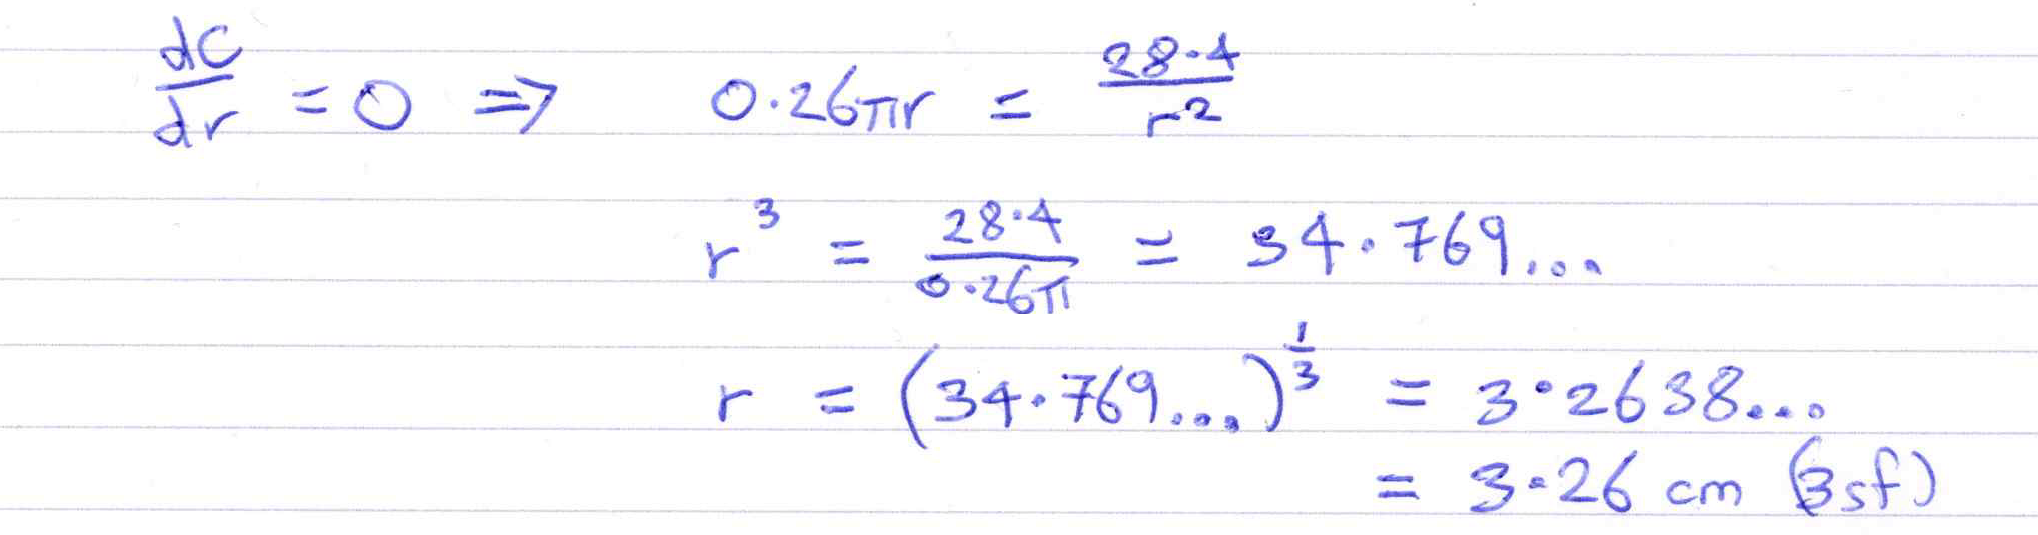 dC/dr = 0 ⇒ 0.26πr = 28.4/r²
r³ = 28.4/0.26π = 34.769...
r = (34.769...)^(1/3) = 3.2638...
= 3.26 cm (3sf)